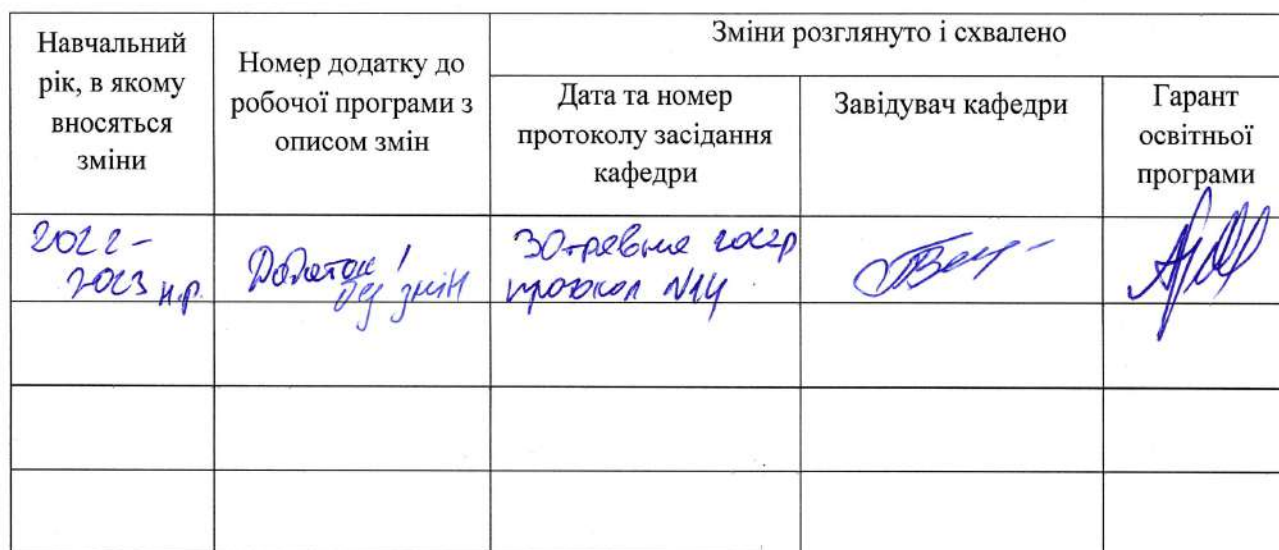 Навчальний
рік, в якому
вносяться
зміни
Номер додатку до
робочої програми з
описом змін
Зміни розглянуто і схвалено
Дата та номер
протоколу засідання
кафедри
Завідувач кафедри
Гарант
освітньої
програми
2022 -
2023 н.р.
Додаток 1
без змін
30 травня 2022р
протокол №14